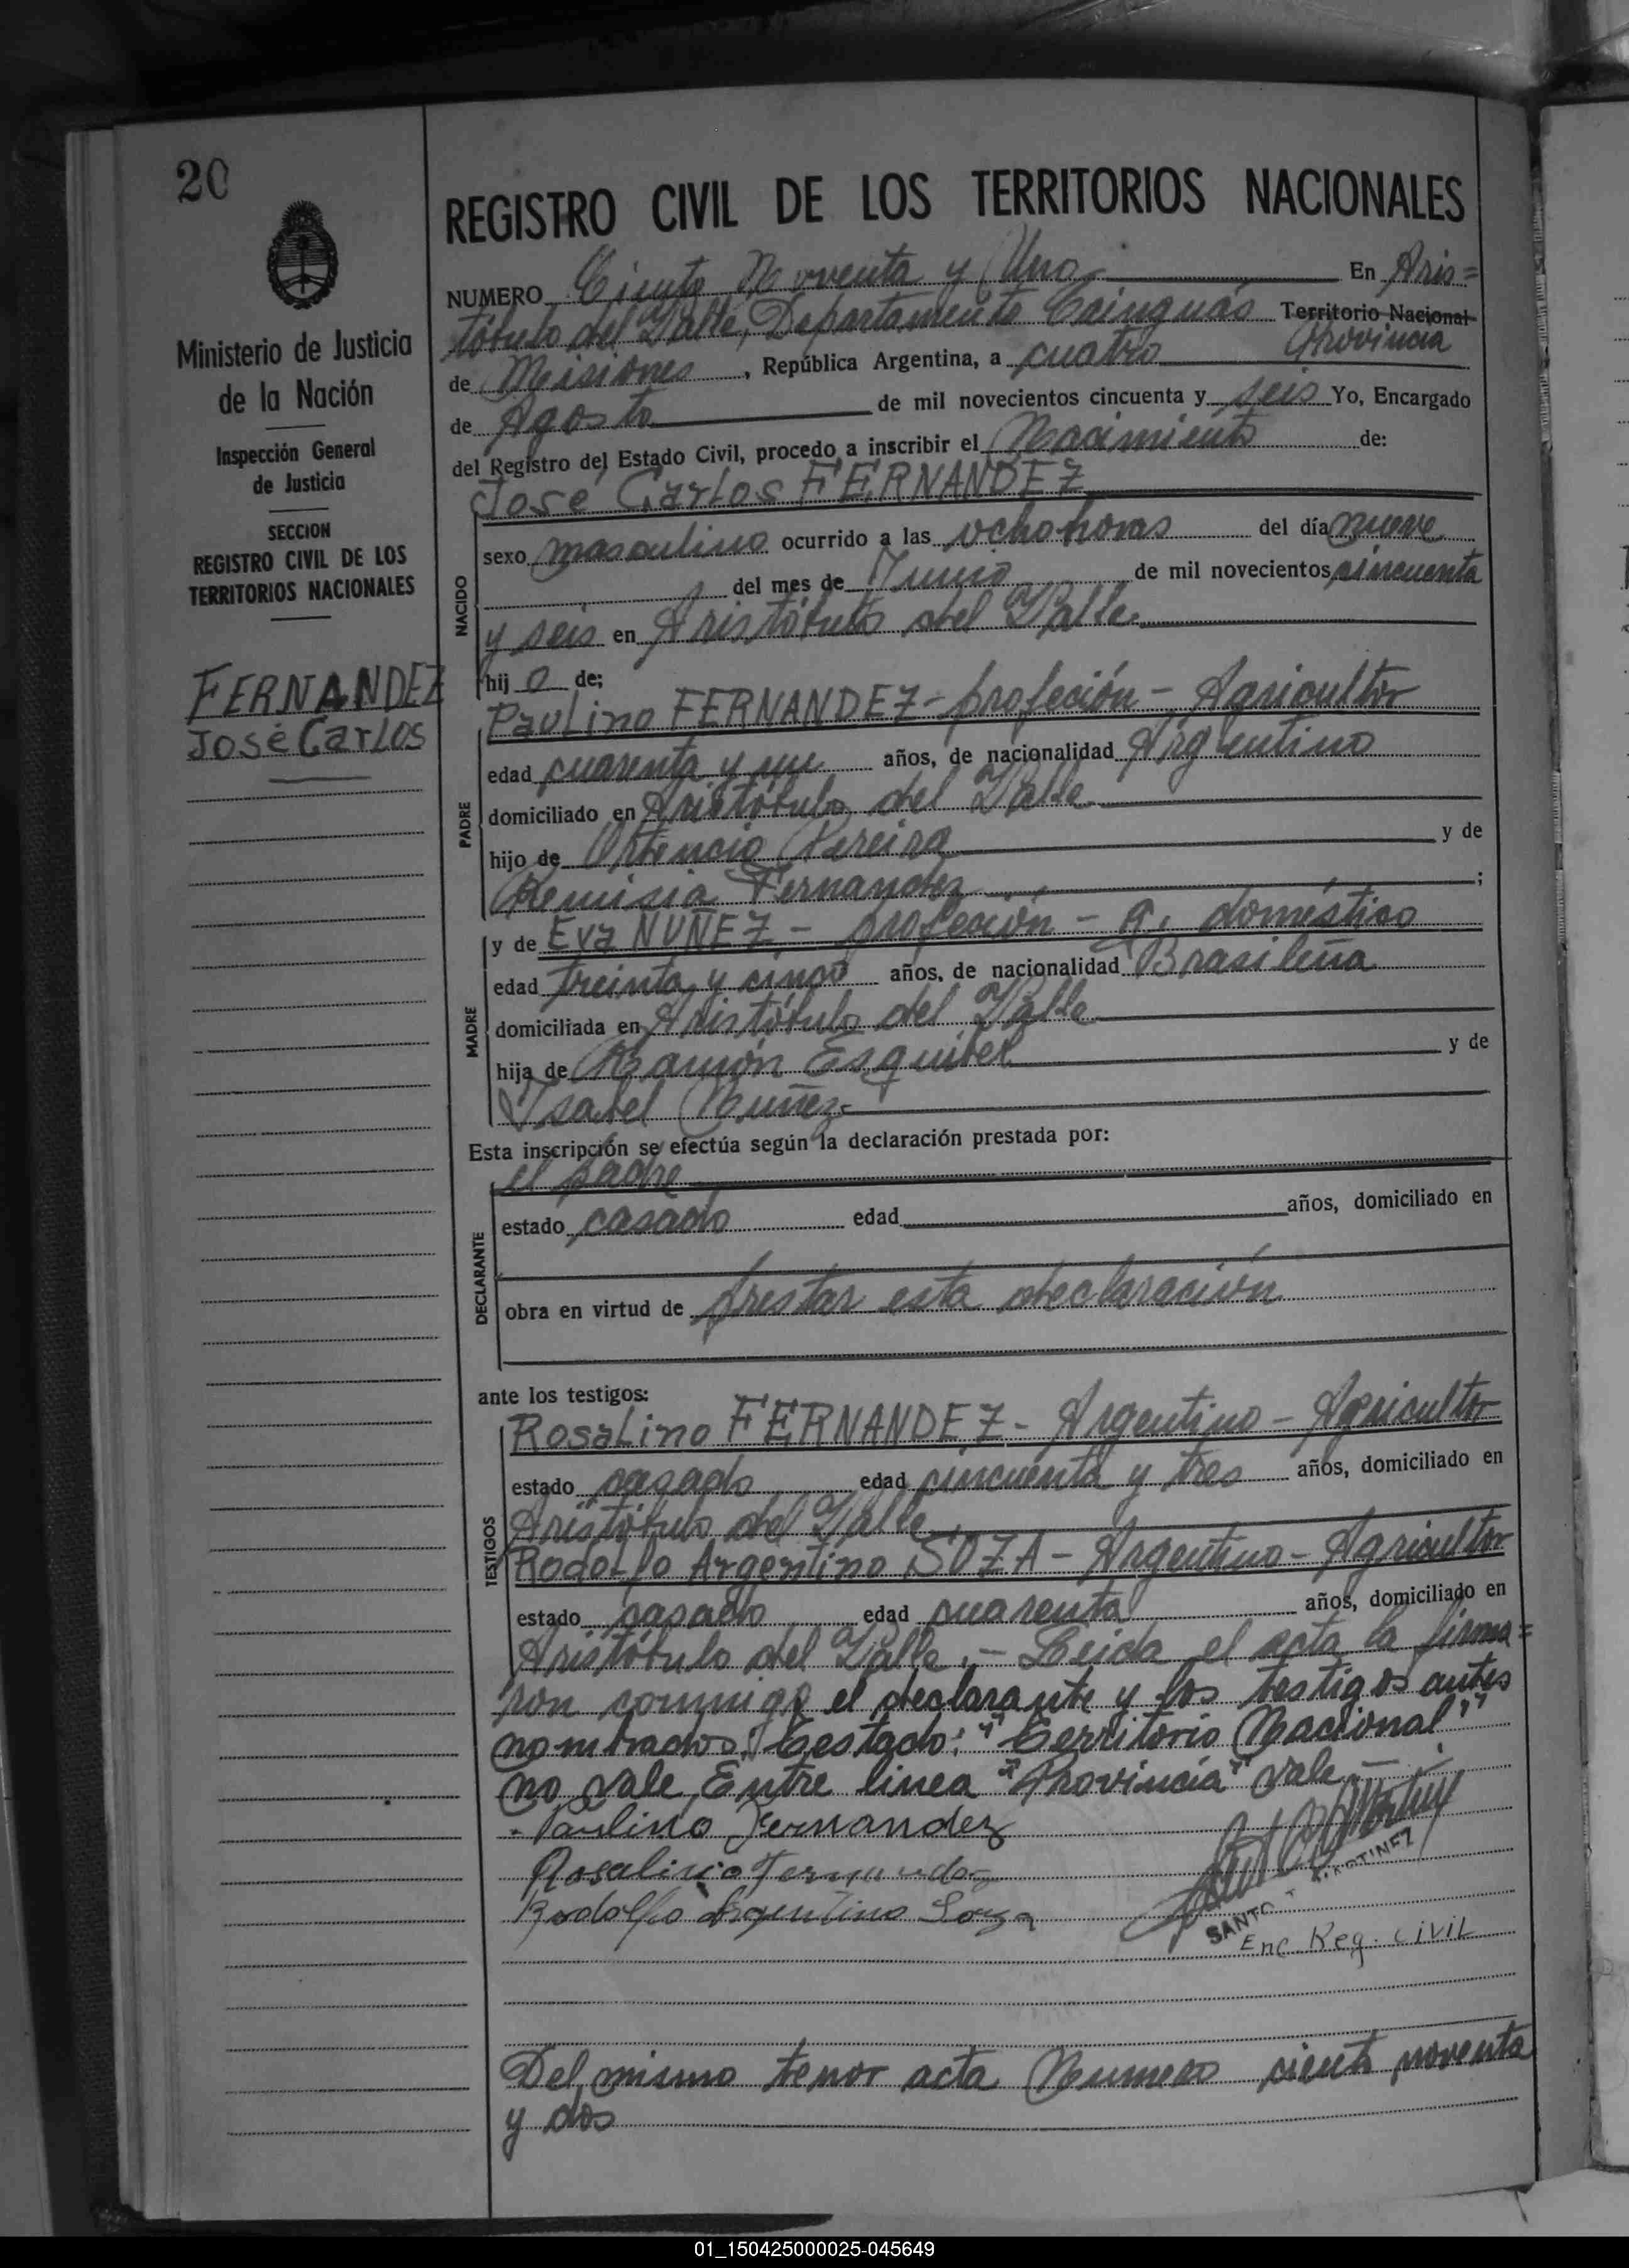 20
REGISTRO CIVIL DE LOS TERRITORIOS NACIONALES
Ministerio de Justicia
de la Nación
Inspección General
de Justicia
SECCION
REGISTRO CIVIL DE LOS
TERRITORIOS NACIONALES
FERNANDEZ
José Carlos
NUMERO Ciento Noventa y Uno En Aris=
tóbulo del Valle, Departamento Cainguás Territorio Nacional
Provincia
de Misiones, República Argentina, a cuatro
de Agosto de mil novecientos cincuenta y seis Yo, Encargado
del Registro del Estado Civil, procedo a inscribir el Nacimiento de:
José Carlos FERNANDEZ
NACIDO
sexo masculino ocurrido a las ocho horas del día nueve
del mes de Junio de mil novecientos cincuenta
y seis en Aristóbulo del Valle
hijo de:
PADRE
Paulino FERNANDEZ - profeción - Agricultor
edad cuarenta y un años, de nacionalidad Argentino
domiciliado en Aristóbulo del Valle
hijo de Ortencio Pereira y de
Remisia Fernandez ;
MADRE
y de Eva NUÑEZ - profeción - q. doméstico
edad treinta y cinco años, de nacionalidad Brasileña
domiciliada en Aristóbulo del Valle
hija de Ramón Esquibel y de
Ysabel Nuñez
Esta inscripción se efectúa según la declaración prestada por:
DECLARANTE
el padre
estado casado edad años, domiciliado en
obra en virtud de prestar esta declaración
ante los testigos:
TESTIGOS
Rosalino FERNANDEZ - Argentino - Agricultor
estado casado edad cincuenta y tres años, domiciliado en
Aristóbulo del Valle
Rodolfo Argentino SOZA - Argentino - Agricultor
estado casado edad cuarenta años, domiciliado en
Aristóbulo del Valle. - Leida el acta la firma=
ron conmigo el declarante y los testigos antes
nombrados. Testado: "Territorio Nacional"
no vale, Entre linea "Provincia" vale -
Paulino Fernandez
Rosalino Fernandez
Rodolfo Argentino Soza
MARTINEZ
Enc. Reg. Civil
Del mismo tenor acta Numero ciento noventa
y dos
01_150425000025-045649